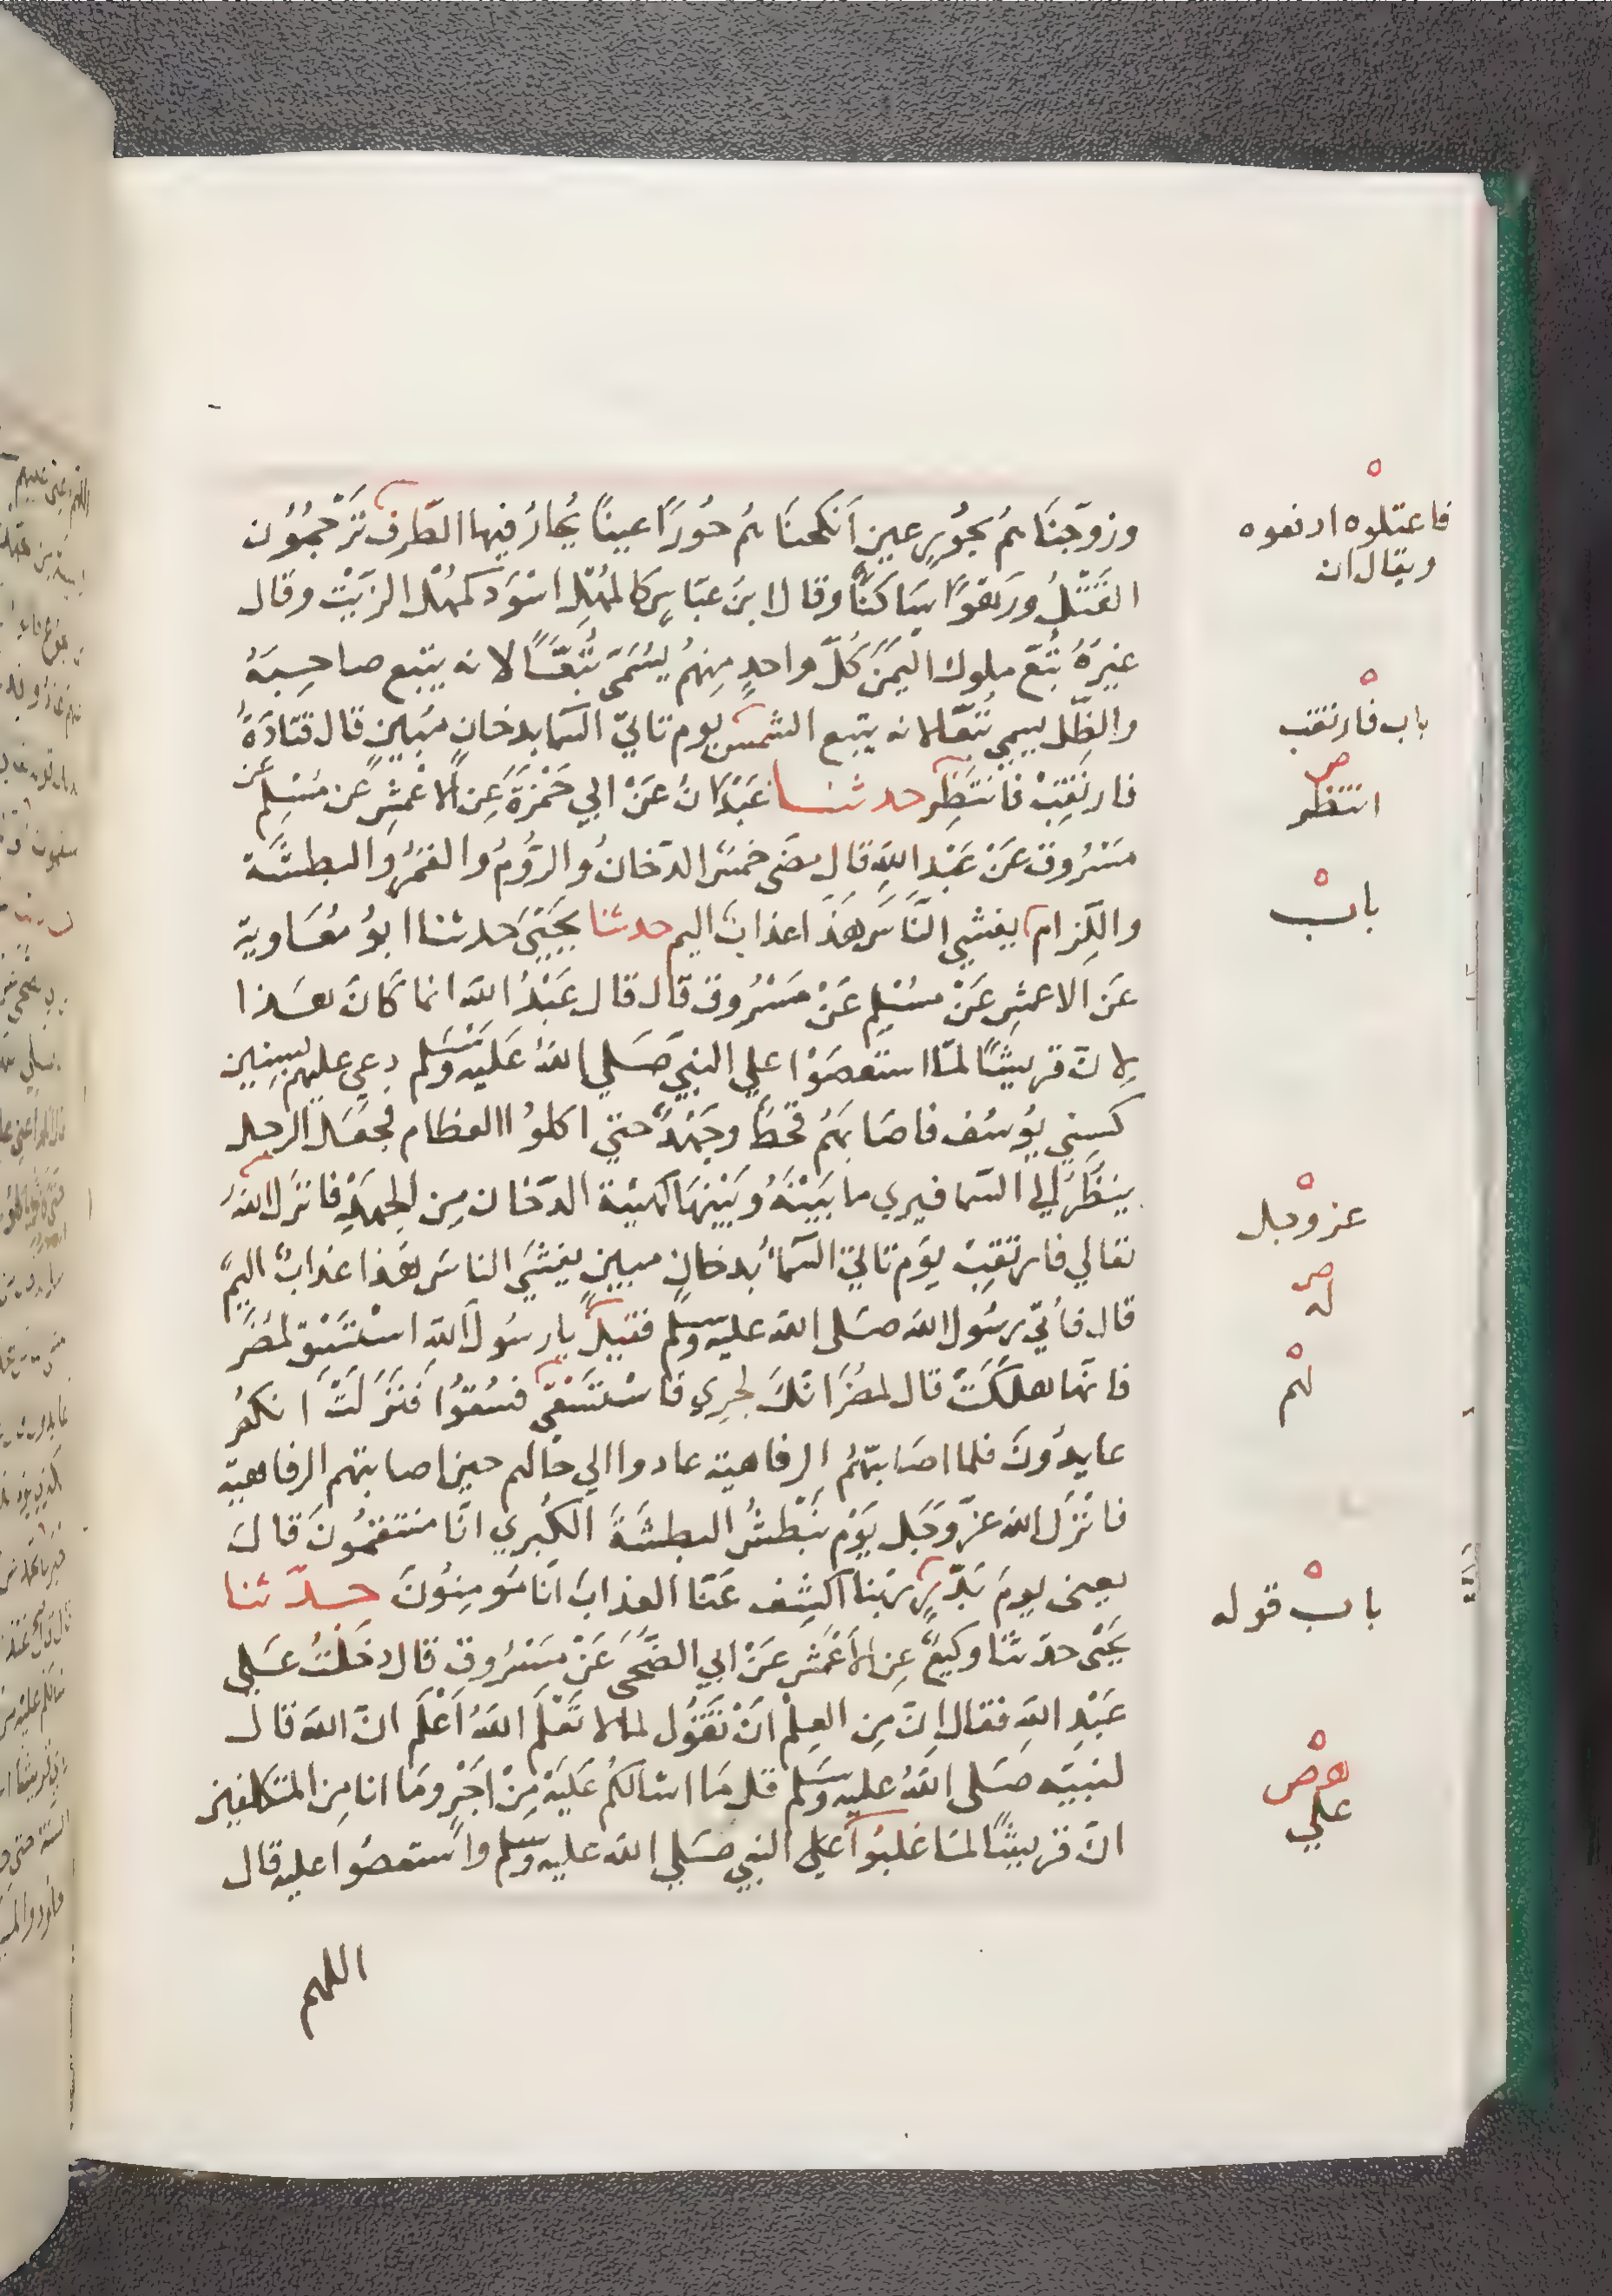 وزوّجناهم بحُورٍ عين اَنكحناهم حُورًا عينًا يُحارُ فيها الطّرف تَرْجُمُوْن
القَتْلُ ورَهْوًا ساكنًا وقال ابن عبّاسٍ كالمُهْلِ اسْوَد كمُهْل الزيْت وقال
غيرَهُ تُبّع ملوك اليمن كلّ واحدٍ منهمُ يُسَمّى تُبَّعًا لانه يتبع صاحِبَهُ
والظّل يسمى تُبّعًا لانه يتبع الشمس يوم تاتي السّما بدخانٍ مبينٍ قال قتادَةُ
فارتقِبْ فانتظِر حدثنا عَبْدَانُ عَنْ ابي حَمْزَةَ عَنِ الاعْمشِ عن مُسْلِمٍ عن
مَسْرُوق عَنْ عَبْد اللهِ قال مضى خمسٌ الدّخانُ والرُّومُ والقمَرُ والبطشَة
واللّزام يغشي النّاسَ هَذَا عذابٌ اليم حدثنا يَحْيَى حدثنا ابوُ مُعَاوية
عَن الاعمشِ عَنْ مسْلِمٍ عَنْ مَسْرُوق قال قال عَبْدُ اللهَ انما كَانَ هَذا
لِانّ قريشًا لمّا استعصَوْا علي النبيّ صَلي اللهُ عَليه وسَلم دعي عليهم بسِنِين
كسِنِي يوُسُف فاصَابَهُم قحْطٌ وجَهْدٌ حتي اكلوُا العظام فجعَل الرجل
ينظُرُ الي السّما فيري ما بَيْنَهُ وبَيْنهَا كهيْئة الدّخان مِن الجهْدِ فانزل اللهُ
تعالي فارتقِبْ يَوم تاتي السّماُ بدخانٍ مبينٍ يغشَي الناسَ هَذا عذابٌ اليمٌ
قال فأُتيَ رسُول الله صَلى الله عليه وسَلم فقيل يا رسُولَ اللهِ اسْتَسْق لمُضَر
فانّها هلكَتْ قال لمُضَر انّكَ لجرِي فاسْتَسْقى فسُقوُا فنَزَلَتْ انكمُ
عايدُونَ فلما اصَابتهُم الرفاهية عادوا الي حالهم حين اصابتهم الرفاهية
فانْزَل الله عَزّ وجَل يَوْم نَبْطشُ البطشَةَ الكُبري انّا منتقمُونَ قالَ
يعنى يومَ بَدْرٍ ربّنا اكشِف عَنّا العذابَ انّا مُومِنوُنَ حدّثنا
يَحْيَى حدّثنا وكيعٌ عِن الاَعْمَش عَنْ ابي الضُّحَى عَنْ مَسْرُوق قال دخلْتُ عَلي
عَبْدِ اللهِ فقال اِنّ مِن العِلْم انْ تَقُول لما لا تَعْلَم اللهُ اَعْلَم انّ اللهَ قال
لنبيّه صَلى اللهُ عليه وسَلم قل مَا اسالكُم عَليْه مِنْ اَجْرٍ ومَا انا مِن المتكلفين
انّ قريشًا لمّا غلبُوا على النبي صَلي الله عليه وسَلم واستعصُوا عليه قال
اللهم
فاعتلوه ادفعوه
ويقال ان
باب فارتقب
انتظر
باب
عز وجل
له
لهم
باب قوله
علي